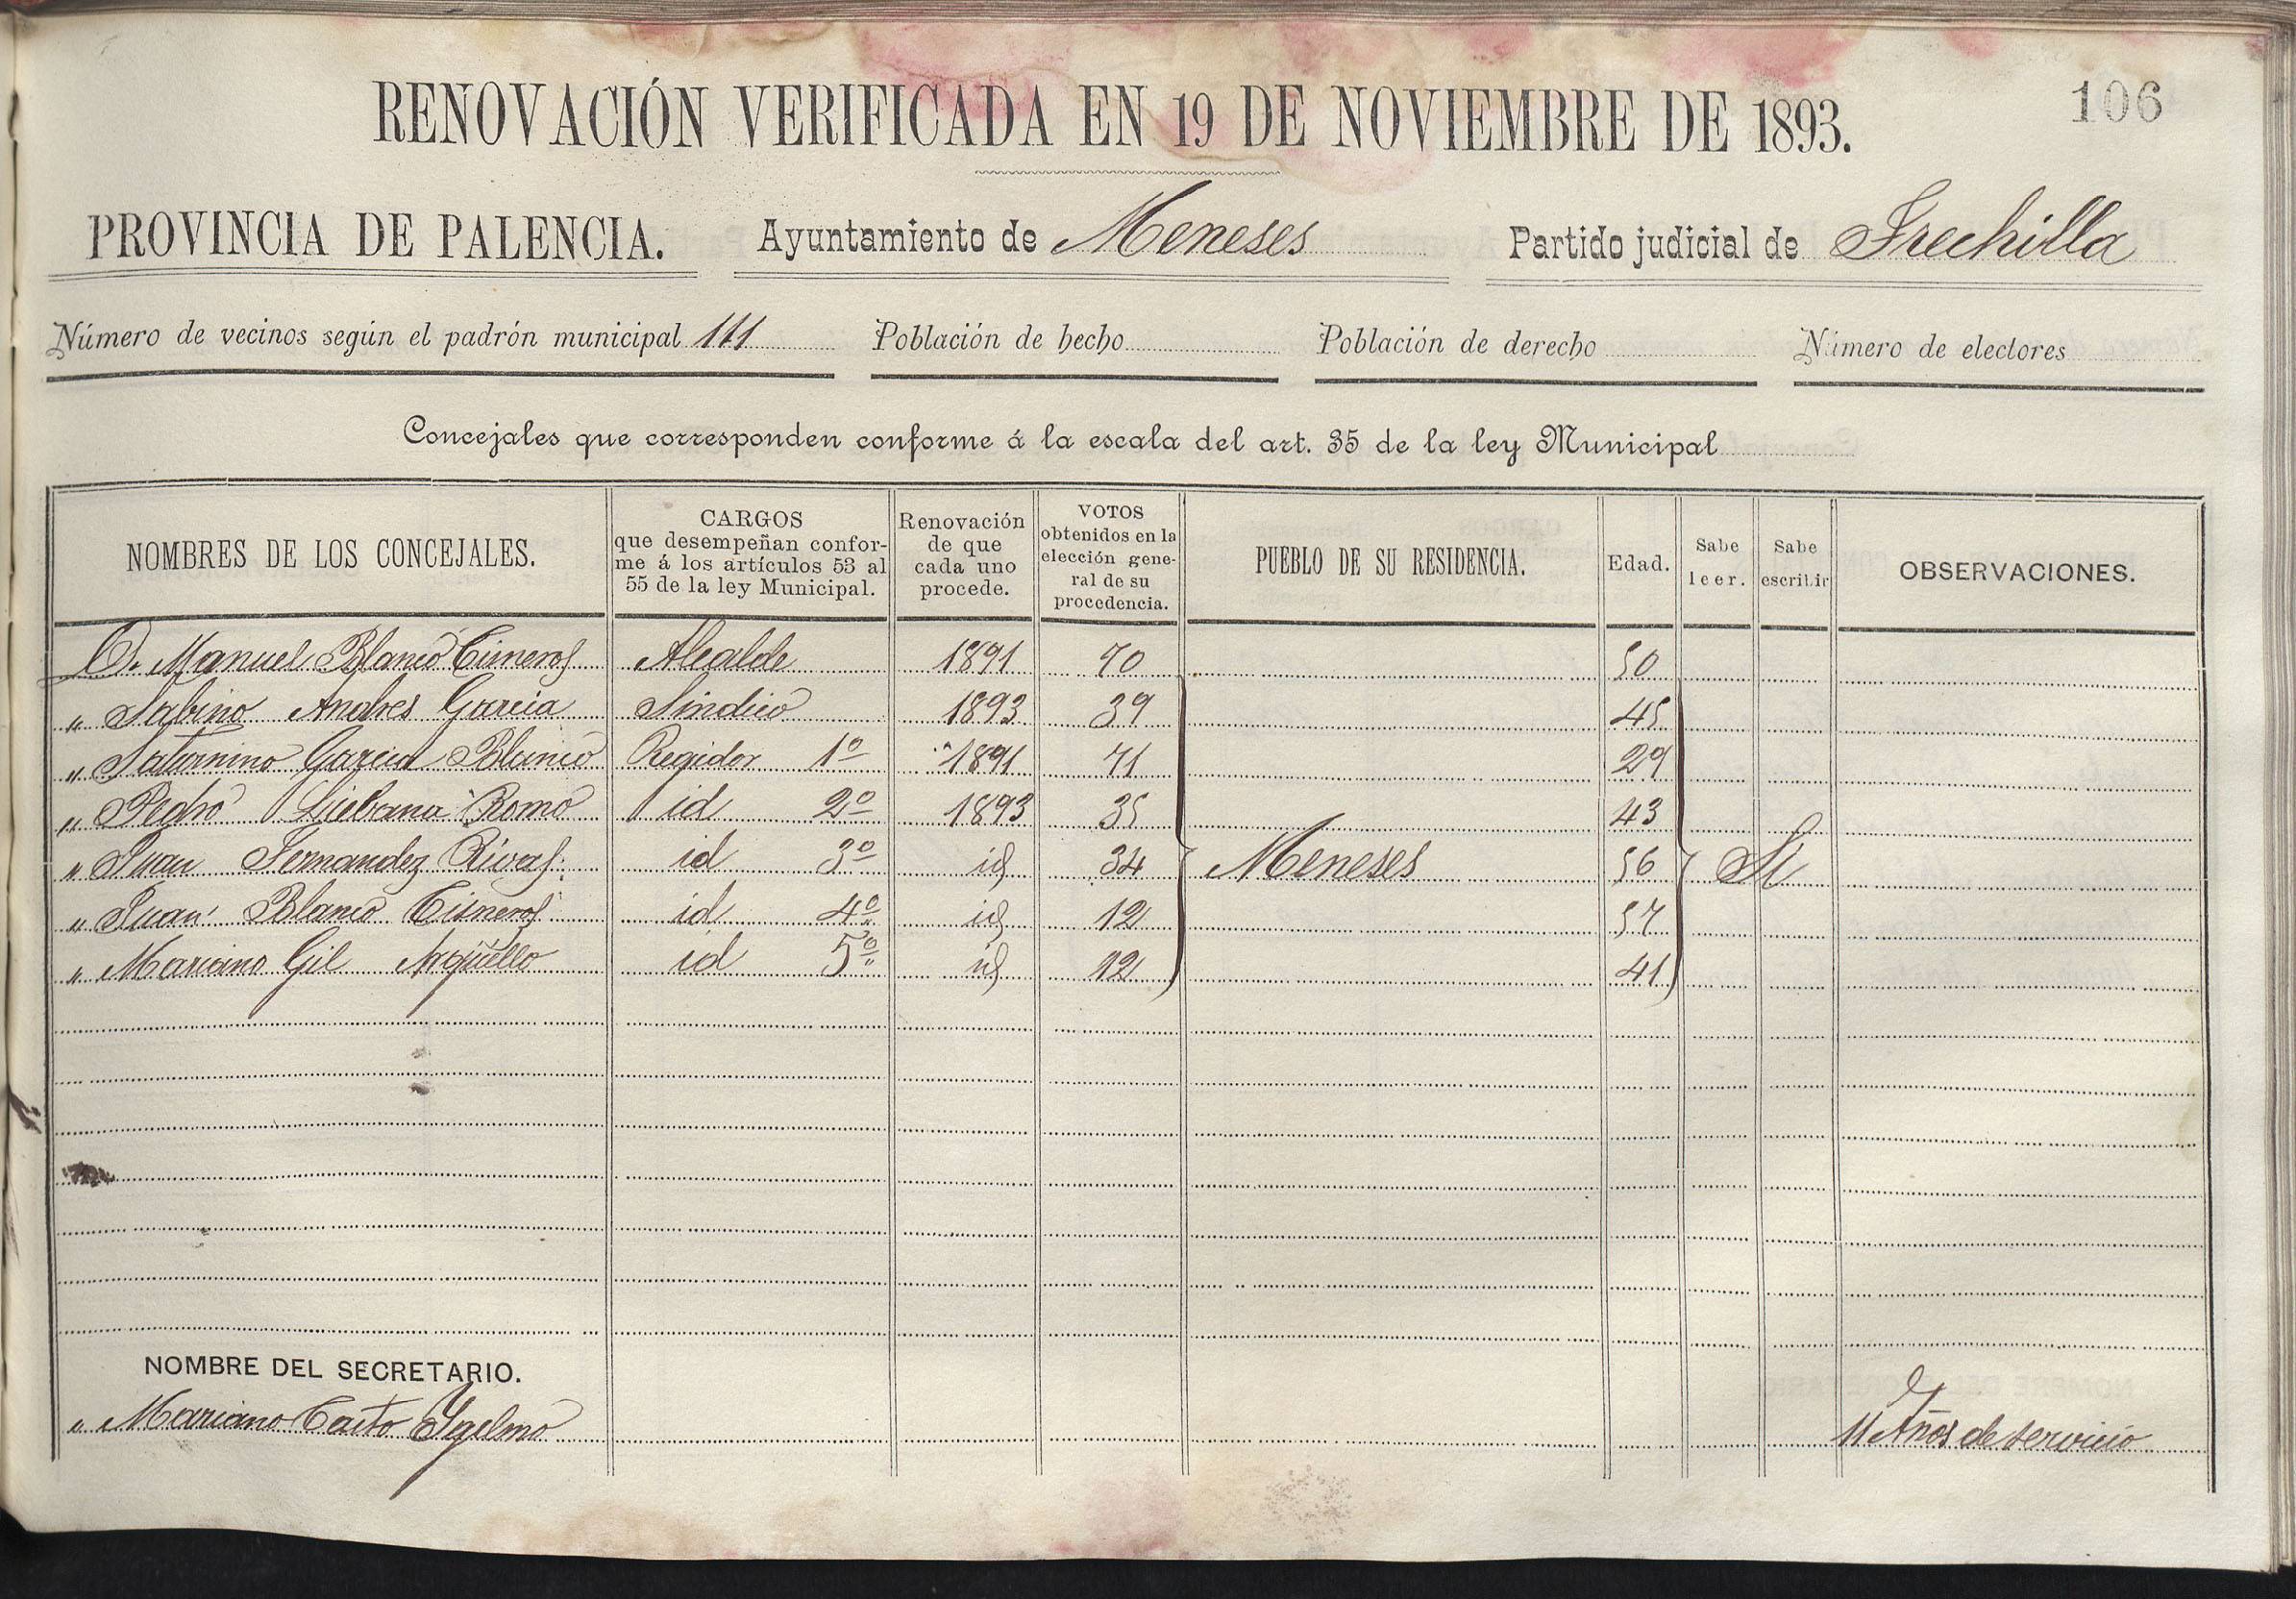 RENOVACIÓN VERIFICADA EN 19 DE NOVIEMBRE DE 1893.
106
PROVINCIA DE PALENCIA. Ayuntamiento de Meneses Partido judicial de Frechilla
Número de vecinos según el padrón municipal 111 Población de hecho Población de derecho Número de electores
Concejales que corresponden conforme á la escala del art. 35 de la ley Municipal
NOMBRES DE LOS CONCEJALES.
CARGOS
que desempeñan confor-
me á los artículos 53 al
55 de la ley Municipal.
Renovación
de que
cada uno
procede.
VOTOS
obtenidos en la
elección gene-
ral de su
procedencia.
PUEBLO DE SU RESIDENCIA.
Edad.
Sabe
leer.
Sabe
escribir
OBSERVACIONES.
D. Manuel Blanco Cisneros Alcalde 1891 70 50
" Sabino Andres Garcia Sindico 1893 39 45
" Saturnino Garcia Blanco Regidor 1º 1891 71 29
" Pedro Liebana Romo id 2º 1893 35 43
" Juan Fernandez Rivas id 3º id 34 Meneses 56 Si
" Juan Blanco Cisneros id 4º id 12 57
" Mariano Gil Argüello id 5º id 12 41
NOMBRE DEL SECRETARIO.
" Mariano Ygelmo 11 Años de servicio